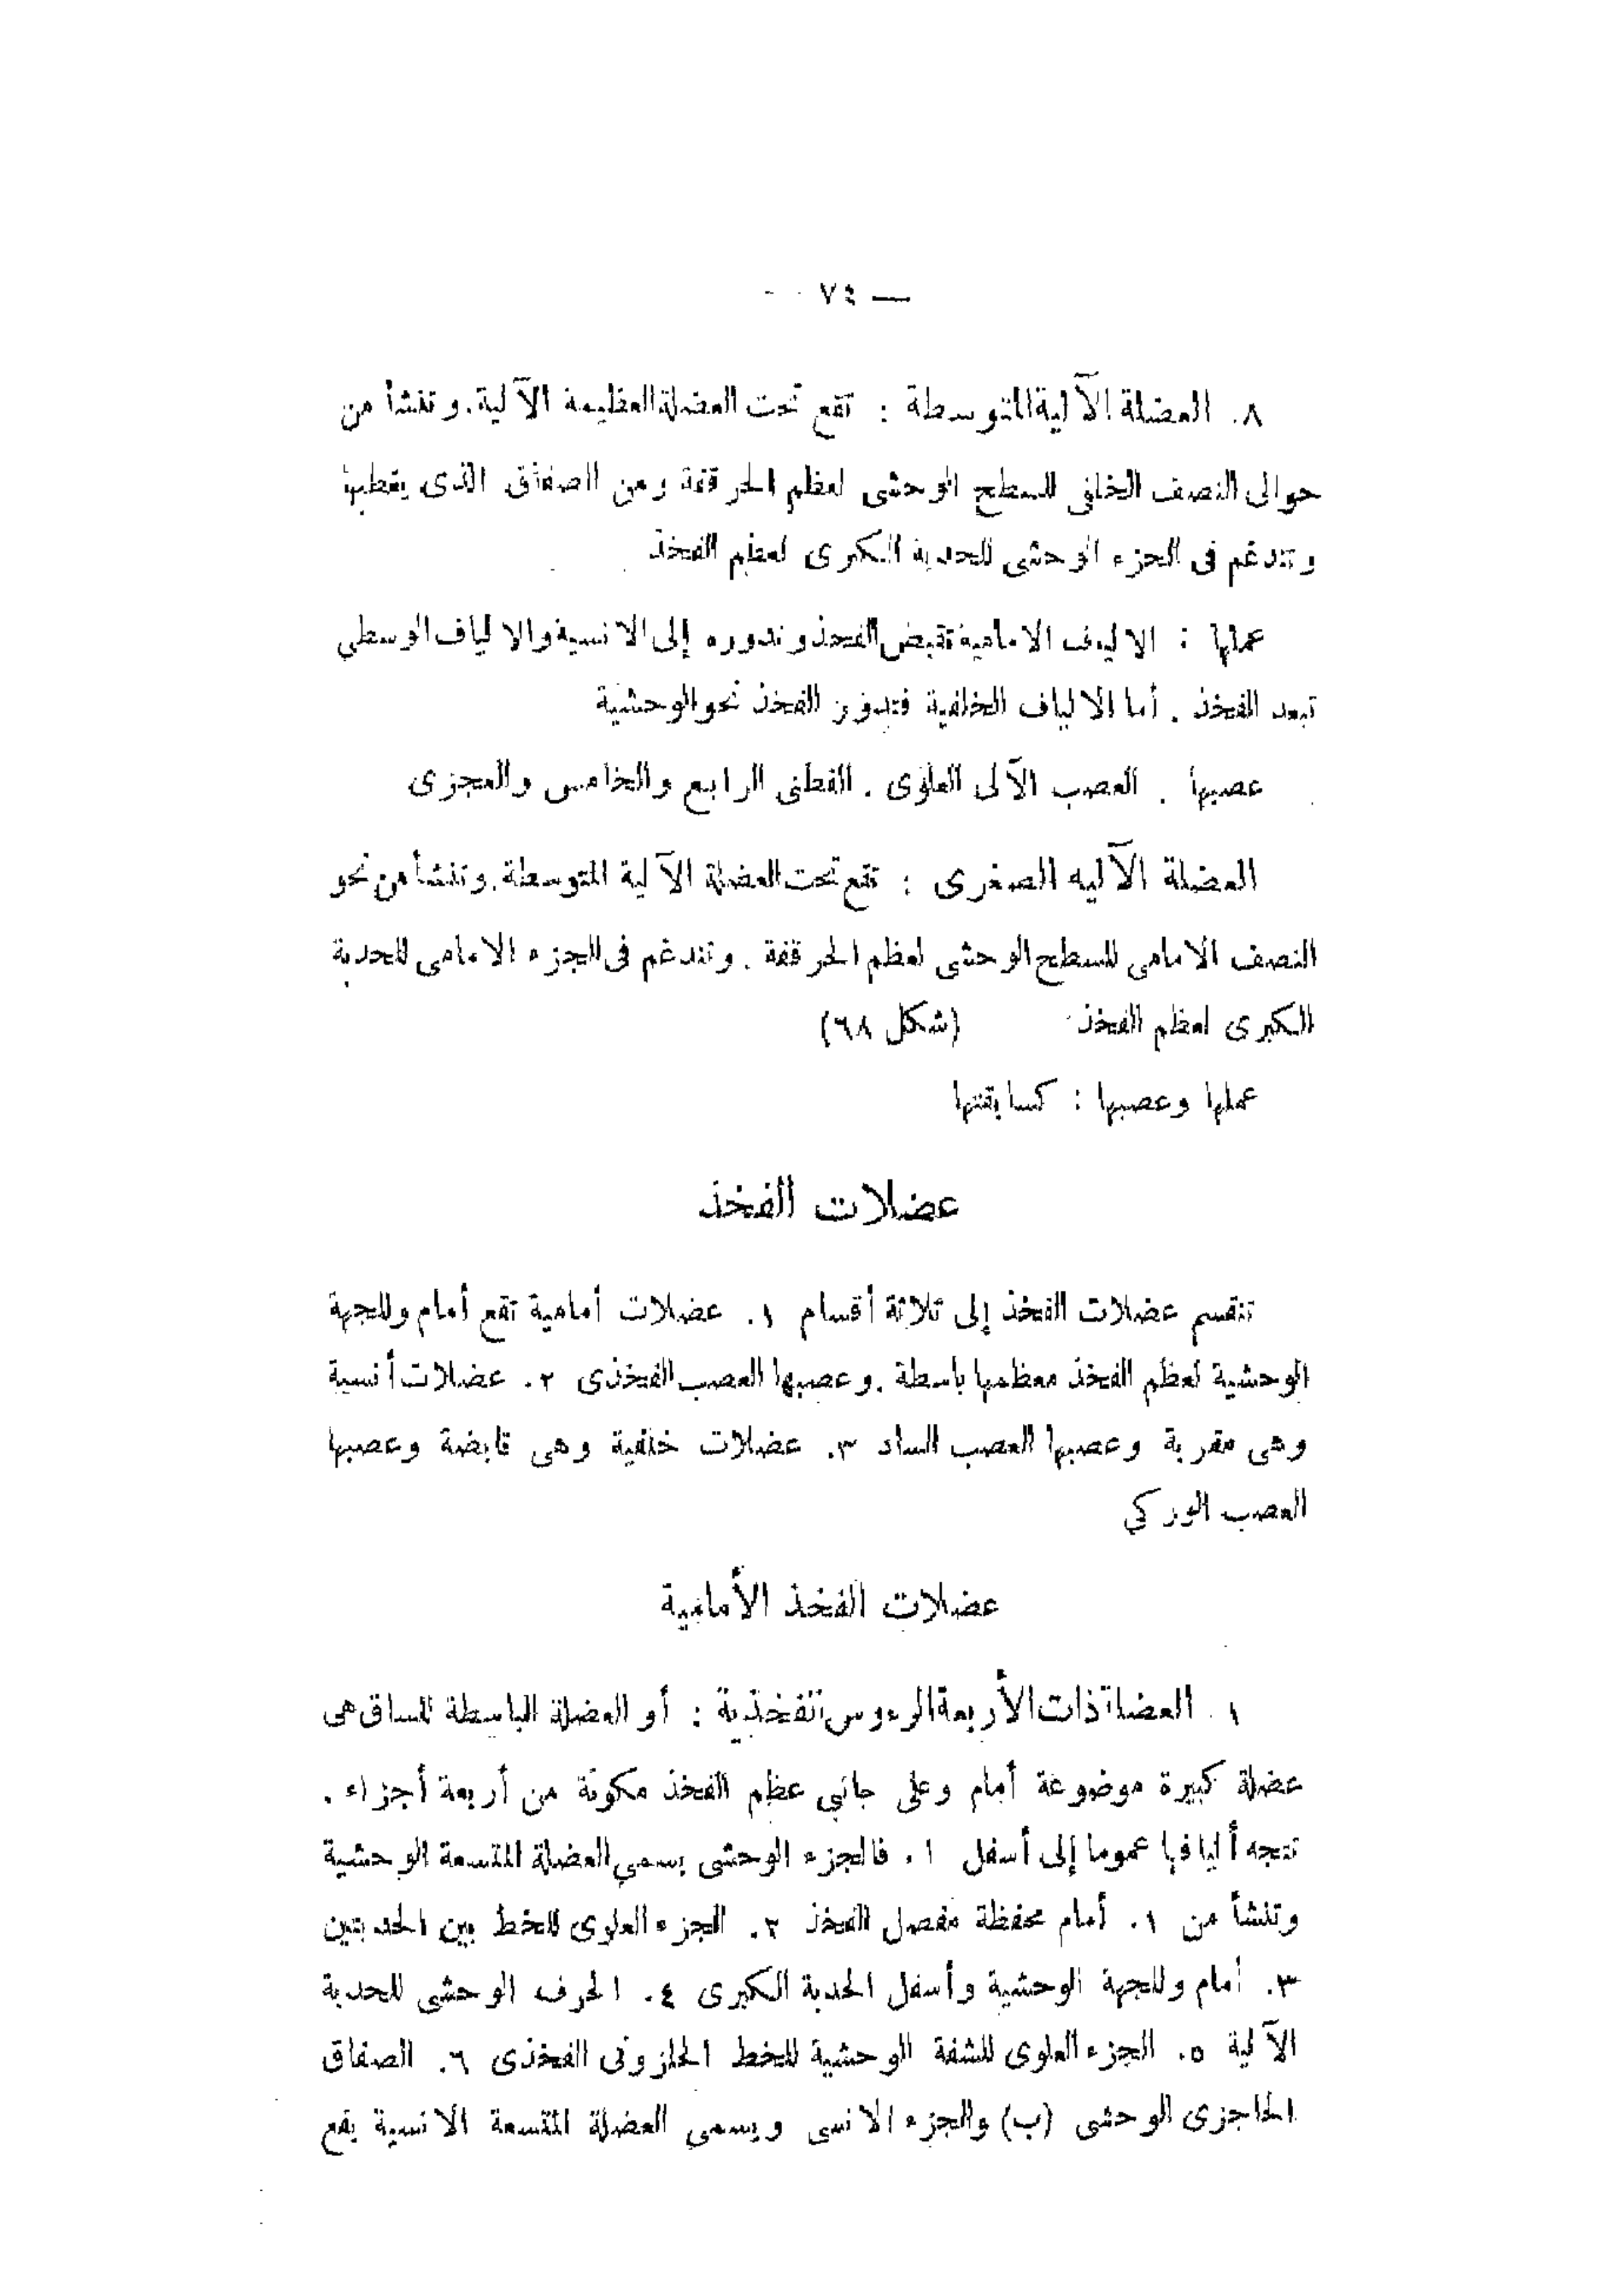 — ٧٤ —
٨. العضلة الآلية المتوسطة : تقع تحت العضلة العظيمة الآلية. وتنشأ من
حوالى النصف الخلفى للسطح الوحشى لعظم الحرقفة ومن الصفاق الذى يغطيها
وتندغم فى الجزء الوحشى للحدبة الكبرى لعظم الفخذ
عملها : الالياف الامامية تقبض الفخذ وتدوره إلى الانسية والالياف الوسطى
تبعد الفخذ . أما الالياف الخلفية فتدور الفخذ نحو الوحشية
عصبها . العصب الآلى العلوى . القطنى الرابع والخامس والعجزى
العضلة الآليه الصغرى : تقع تحت العضلة الآلية المتوسطة. وتنشأ من نحو
النصف الامامى للسطح الوحشى لعظم الحرقفة . وتندغم فى الجزء الامامى للحدبة
الكبرى لعظم الفخذ (شكل ٦٨)
عملها وعصبها : كسابقتها
عضلات الفخذ
تنقسم عضلات الفخذ إلى ثلاثة أقسام ١. عضلات أمامية تقع أمام وللجهة
الوحشية لعظم الفخذ معظمها باسطة . وعصبها العصب الفخذى ٢. عضلات أنسية
وهى مقربة وعصبها العصب الساد ٣. عضلات خلفية وهى قابضة وعصبها
العصب الوركي
عضلات الفخذ الأمامية
١. العضلة ذات الأربعة الرءوس الفخذية : أو العضلة الباسطة للساق هى
عضلة كبيرة موضوعة أمام وعلى جانبى عظم الفخذ مكونة من أربعة أجزاء .
تتجه أليافها عموما إلى أسفل ١. فالجزء الوحشى يسمى العضلة المتسعة الوحشية
وتنشأ من ١. أمام محفظة مفصل الفخذ ٢. الجزء العلوى للخط بين الحدبتين
٣. أمام وللجهة الوحشية وأسفل الحدبة الكبرى ٤. الحرف الوحشى للحدبة
الآلية ٥. الجزء العلوى للشفة الوحشية للخط الحلزونى الفخذى ٦. الصفاق
الحاجزى الوحشى (ب) والجزء الانسى ويسمى العضلة المتسعة الانسية يقع